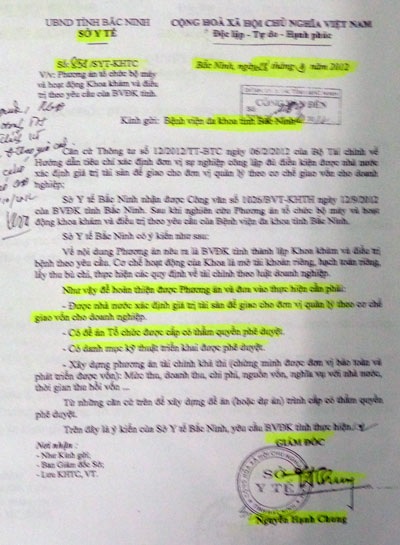 UBND TỈNH BẮC NINH
SỞ Y TẾ
CỘNG HOÀ XÃ HỘI CHỦ NGHĨA VIỆT NAM
Độc lập - Tự do - Hạnh phúc
Số: /SYT-KHTC
Bắc Ninh, ngày tháng năm 2012
V/v: Phương án tổ chức bộ máy
và hoạt động Khoa khám và điều
trị theo yêu cầu của BVĐK tỉnh.
CÔNG VĂN ĐẾN
Kính gửi: Bệnh viện đa khoa tỉnh Bắc Ninh
Căn cứ Thông tư số 12/2012/TT-BTC ngày 06/2/2012 của Bộ Tài chính về
Hướng dẫn tiêu chí xác định đơn vị sự nghiệp công lập đủ điều kiện được nhà nước
xác định giá trị tài sản để giao cho đơn vị quản lý theo cơ chế giao vốn cho doanh
nghiệp;
Sở Y tế Bắc Ninh nhận được Công văn số 1026/BVT-KHTH ngày 12/9/2012
của BVĐK tỉnh Bắc Ninh. Sau khi nghiên cứu Phương án tổ chức bộ máy và hoạt
động khoa khám và điều trị theo yêu cầu của Bệnh viện đa khoa tỉnh Bắc Ninh.
Sở Y tế Bắc Ninh có ý kiến như sau:
Về nội dung Phương án nêu ra là BVĐK tỉnh thành lập Khoa khám và điều trị
bệnh theo yêu cầu. Cơ chế hoạt động của Khoa là mở tài khoản riêng, hạch toán riêng,
lấy thu bù chi, thực hiện các quy định về tài chính theo luật doanh nghiệp.
Như vậy để hoàn thiện được Phương án và đưa vào thực hiện cần phải:
- Được nhà nước xác định giá trị tài sản để giao cho đơn vị quản lý theo cơ chế
giao vốn cho doanh nghiệp.
- Có đề án Tổ chức được cấp có thẩm quyền phê duyệt.
- Có danh mục kỹ thuật triển khai được phê duyệt.
- Xây dựng phương án tài chính khả thi (chứng minh được đơn vị bảo toàn và
phát triển được vốn): Mức thu, doanh thu, chi phí, nguồn vốn, nghĩa vụ với nhà nước,
thời gian thu hồi vốn ...
Từ những căn cứ trên để xây dựng đề án (hoặc dự án) trình cấp có thẩm quyền
phê duyệt.
Trên đây là ý kiến của Sở Y tế Bắc Ninh, yêu cầu BVĐK tỉnh thực hiện./.
Nơi nhận:
- Như Kính gửi;
- Ban Giám đốc Sở;
- Lưu KHTC, VT.
GIÁM ĐỐC
SỞ
Y TẾ
Nguyễn Hạnh Chung